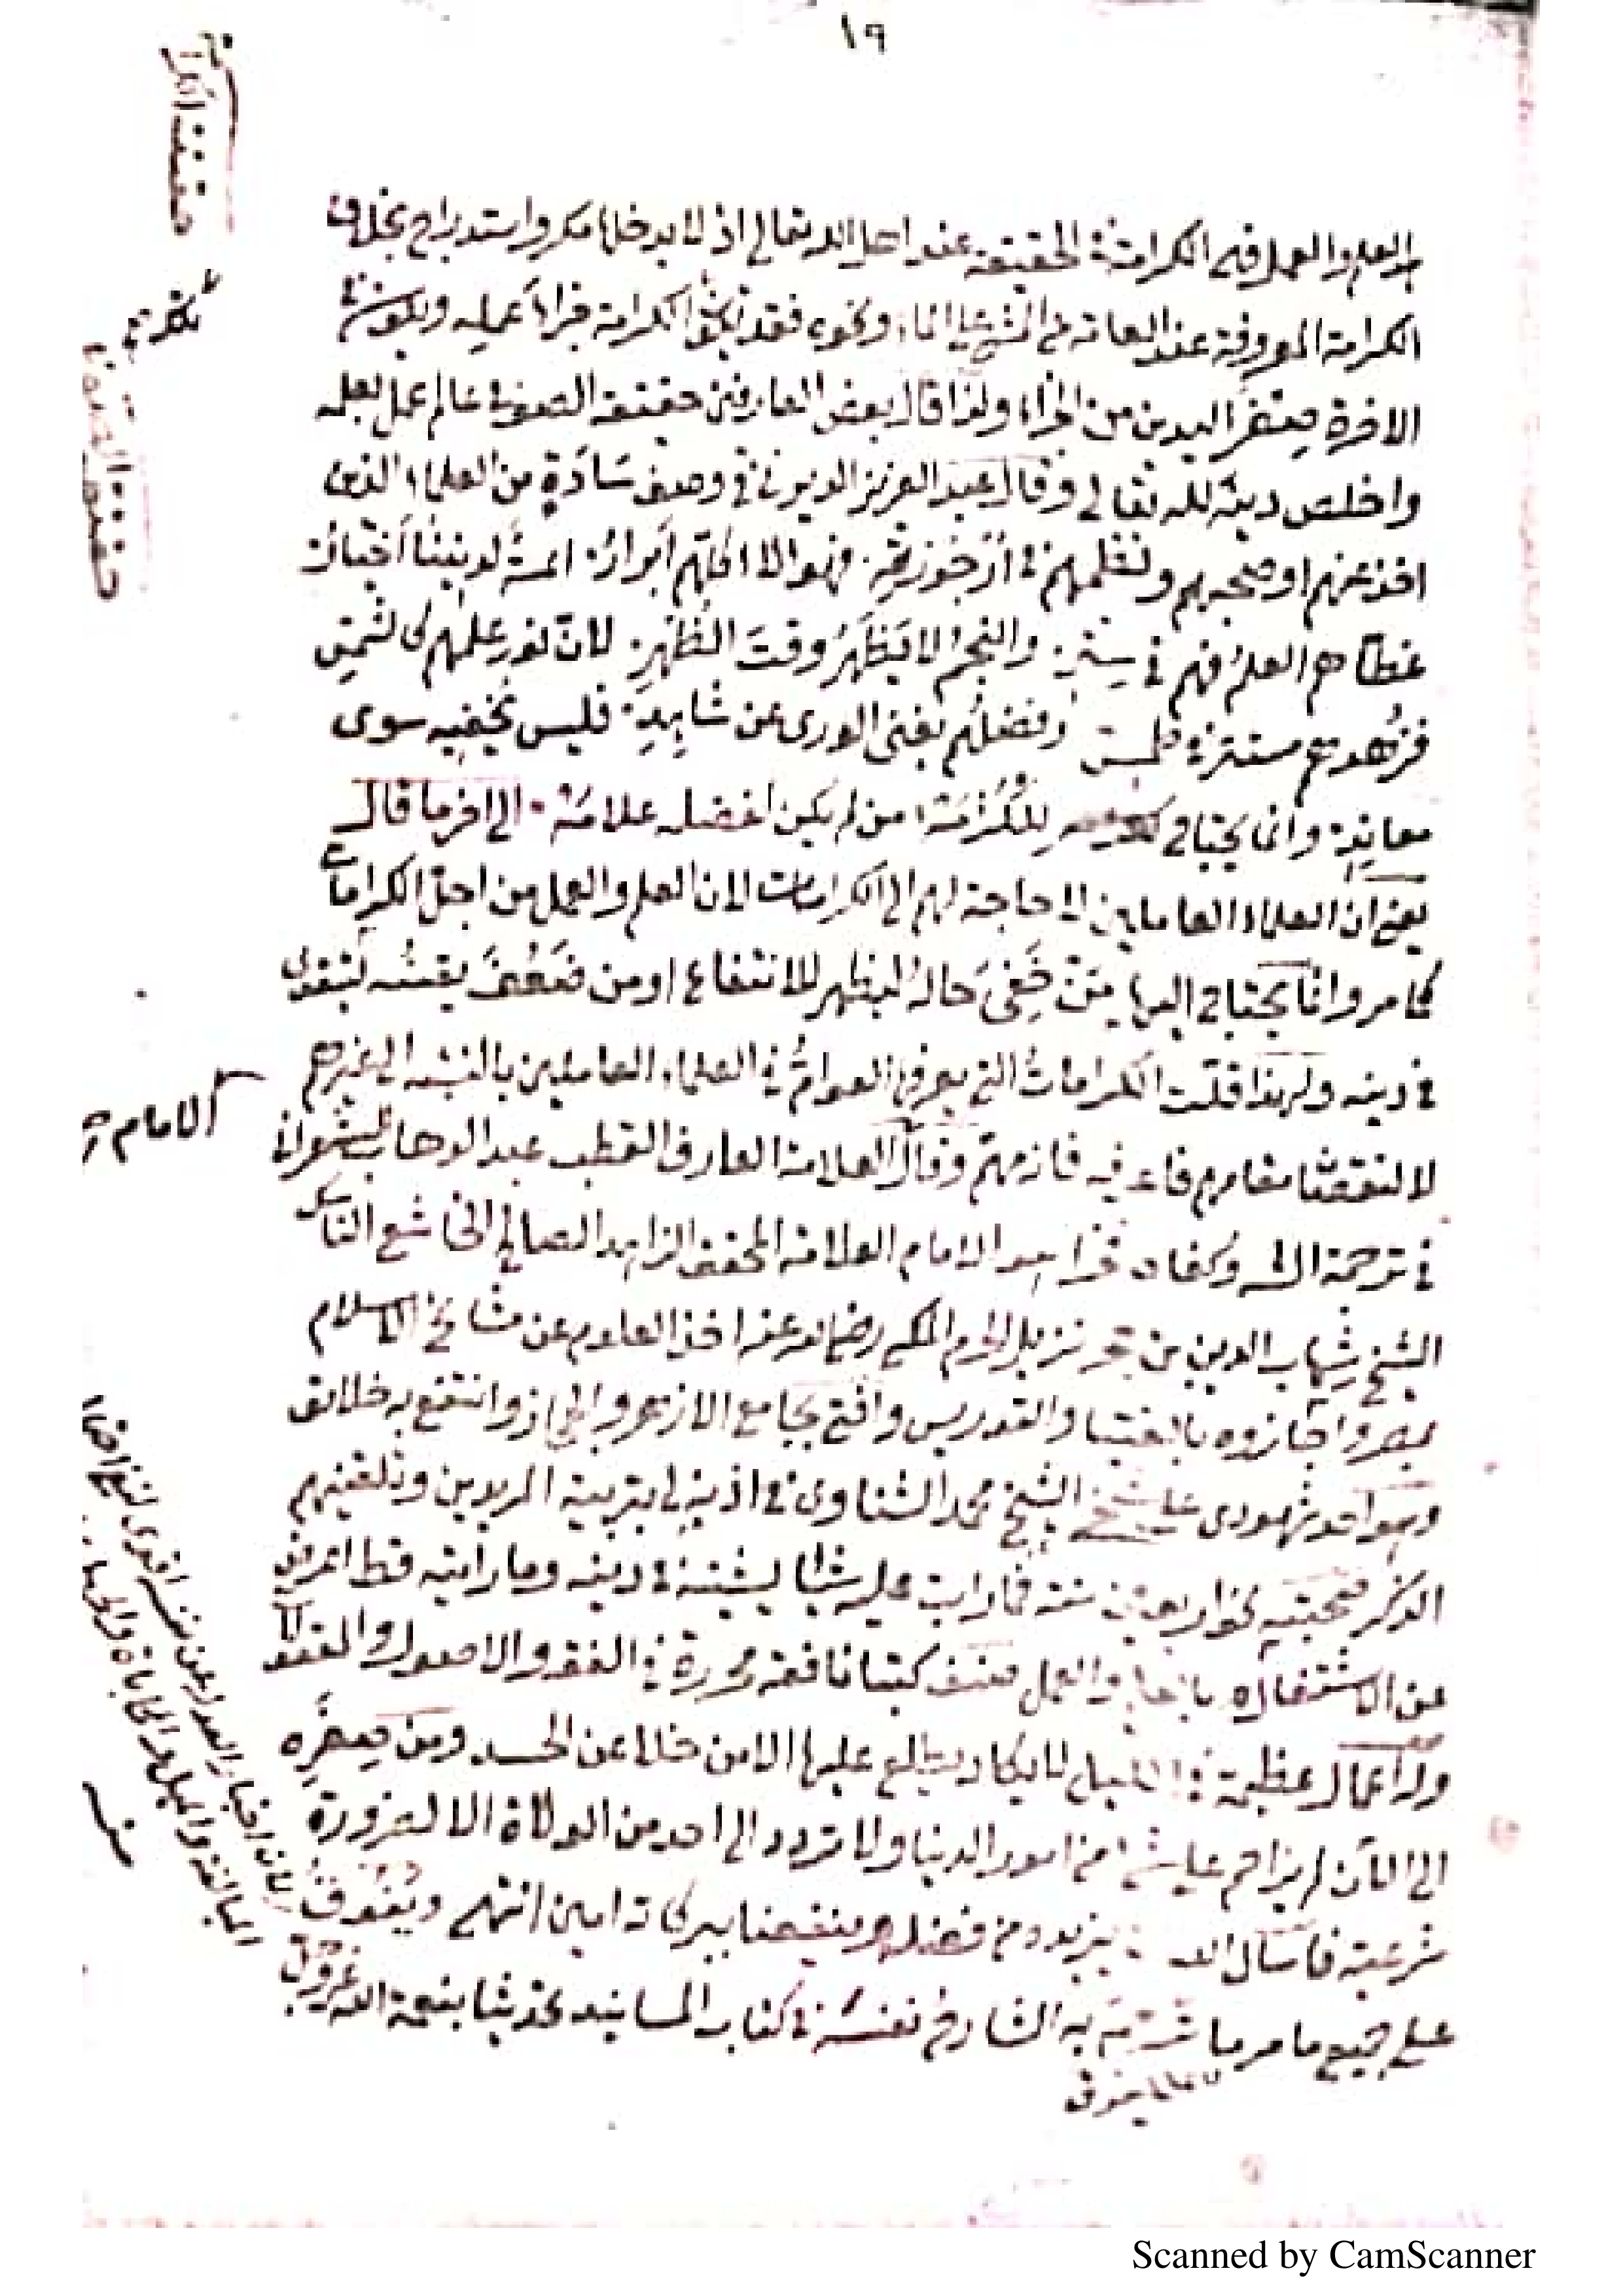 ١٩
العلم والعمل فهي الكرامة الحقيقة عند اهل الله تعالى اذ لا يدخلها مكر واستدراج بخلاف
الكرامة المعروفة عند العامة من المشي على الماء ونحوه فقد تكون الكرامة جزاء عمله ويكون في
الاخرة صفر اليدين من الجزاء ولذا قال بعض العارفين حقيقة الصوفي عالم عمل بعلمه
واخلص دينه لله تعالى وقال عبد العزيز الديريني في وصف سادة من العلماء الذين
اخذ عنهم او صحبهم ونظمهم في ارجوزته فهؤلاء كلهم أبرار ائمة لديننا أخيار
غطاهم العلم فهم في ستر والنجم لا يظهر وقت الظهر لان نور علمهم كالشمس
فزهدهم مستتر في طمس وفضلهم يغني الورى عن شاهد فليس يخفيه سوى
معاند وانما يحتاج للكرامة من لم يكن لفضله علامة الى اخر ما قال
يعني ان العلماء العاملين لا حاجة لهم الى الكرامات لان العلم والعمل من اجل الكرامات
كما مر وانما يحتاج اليها من خفي حاله ليظهر للانتفاع او من ضعف يقينه ليتقوى
في دينه ولهذا قلت الكرامات التي يعرفها العوام في العلماء العاملين بالنسبة الى غيرهم
لا لنقص مقامهم فاعرفه فانه مهم وقال العلامة العارف القطب عبد الوهاب الشعراني
في ترجمة الشيخ وكفاه فخرا هو الامام العلامة المحقق الزاهد الصالح الخاشع الناسك
الشيخ شهاب الدين بن حجر نزيل الحرم المكي رضي الله عنه اخذ العلوم عن مشايخ الاسلام
بمصر واجازوه بالفتيا والتدريس وافتى بجامع الازهر والحجاز وانتفع به خلائق
وهو احد شهودي على شيخي الشيخ محمد الشناوي في اذنه لي بتربية المريدين وتلقينهم
الذكر صحبته نحو اربعين سنة فما رايت عليه شيئا يشينه في دينه وما رايته قط اعرض
عن الاشتغال بالعلم والعمل صنف كتبا نافعة محررة في الفقه والاصول والمعقولات
وله أعمال عظيمة في الليل لا يكاد يطلع عليها الا من خلا عن الحسد ومن صغره
الى الآن لم يزاحم على شيء من امور الدنيا ولا تردد الى احد من الولاة الا لضرورة
شرعية فأسأل الله يزيده من فضله وينفعنا ببركاته امين انتهى ويفوق
على جميع ما مر ما ترجم به الشارح نفسه في كتاب المسانيد تحدثا بنعمة الله عز وجل
الامام